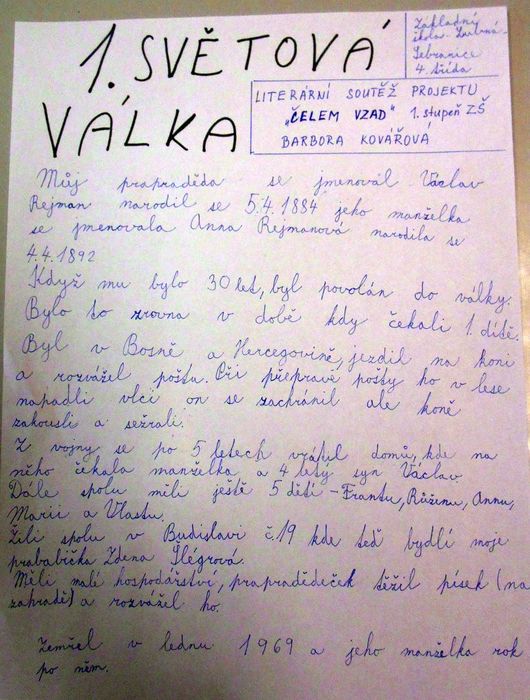 1. SVĚTOVÁ
VÁLKA
Základní
škola - Lubná -
Sebranice
4. třída
LITERÁRNÍ SOUTĚŽ PROJEKTU
„ČELEM VZAD" 1. stupeň ZŠ
BARBORA KOVÁŘOVÁ
Můj prapraděda se jmenoval Václav
Rejman narodil se 5.4.1884 jeho manželka
se jmenovala Anna Rejmanová narodila se
4.4.1892
Když mu bylo 30 let, byl povolán do války.
Bylo to zrovna v době kdy čekali 1. dítě.
Byl v Bosně a Hercegovině, jezdil na koni
a rozvážel poštu. Při přepravě pošty ho v lese
napadli vlci on se zachránil ale koně
zakousli a sežrali.
Z vojny se po 5 letech vrátil domů, kde na
něho čekala manželka a 4 letý syn Václav.
Dále spolu měli ještě 5 dětí - Frantu, Růženu, Annu,
Marii a Vlastu.
Žili spolu v Budislavi č.19 kde teď bydlí moje
prababička Zdena Šlégrová.
Měli malé hospodářství, prapradědeček těžil písek (na
zahradě) a rozvážel ho.
Zemřel v lednu 1969 a jeho manželka rok
po něm.